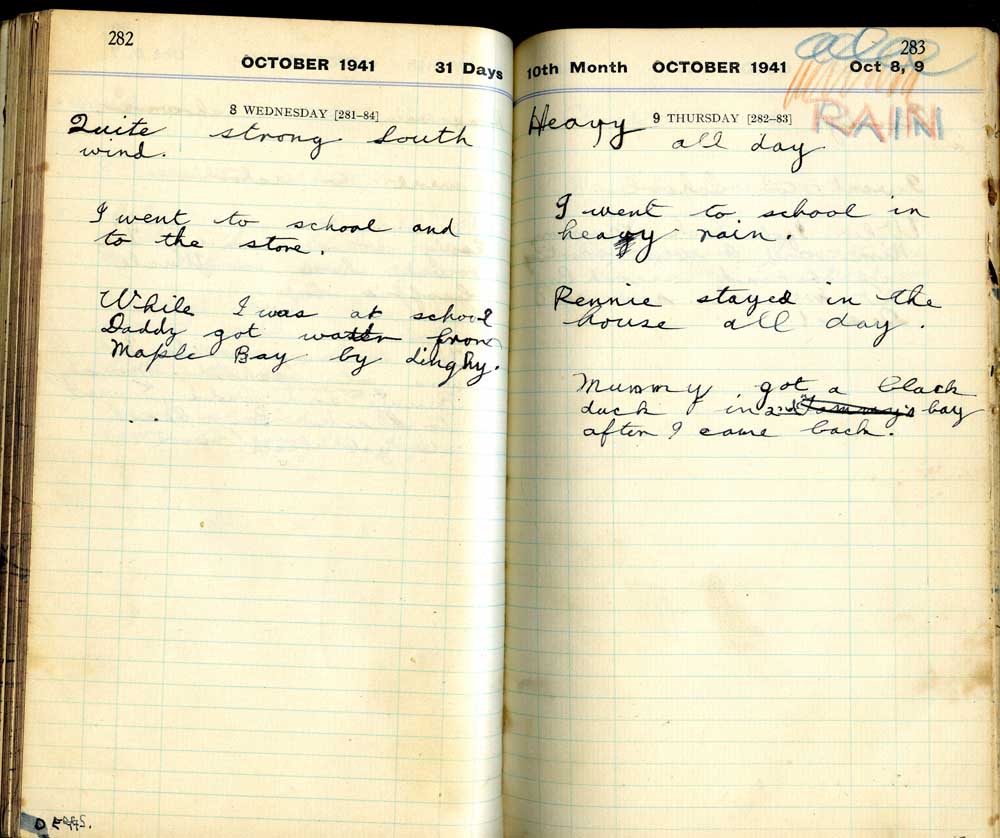 282
OCTOBER 1941 31 Days
8 WEDNESDAY [281–84]
Quite strong South
wind.
I went to school and
to the store.
While I was at school
Daddy got water from
Maple Bay by dinghy.
0 EGGS.
283
10th Month OCTOBER 1941 Oct 8, 9
9 THURSDAY [282–83]
RAIN
Heavy
all day
I went to school in
heavy rain.
Rennie stayed in the
house all day.
Mummy got a black
duck in 2nd Tommy's bay
after I came back.